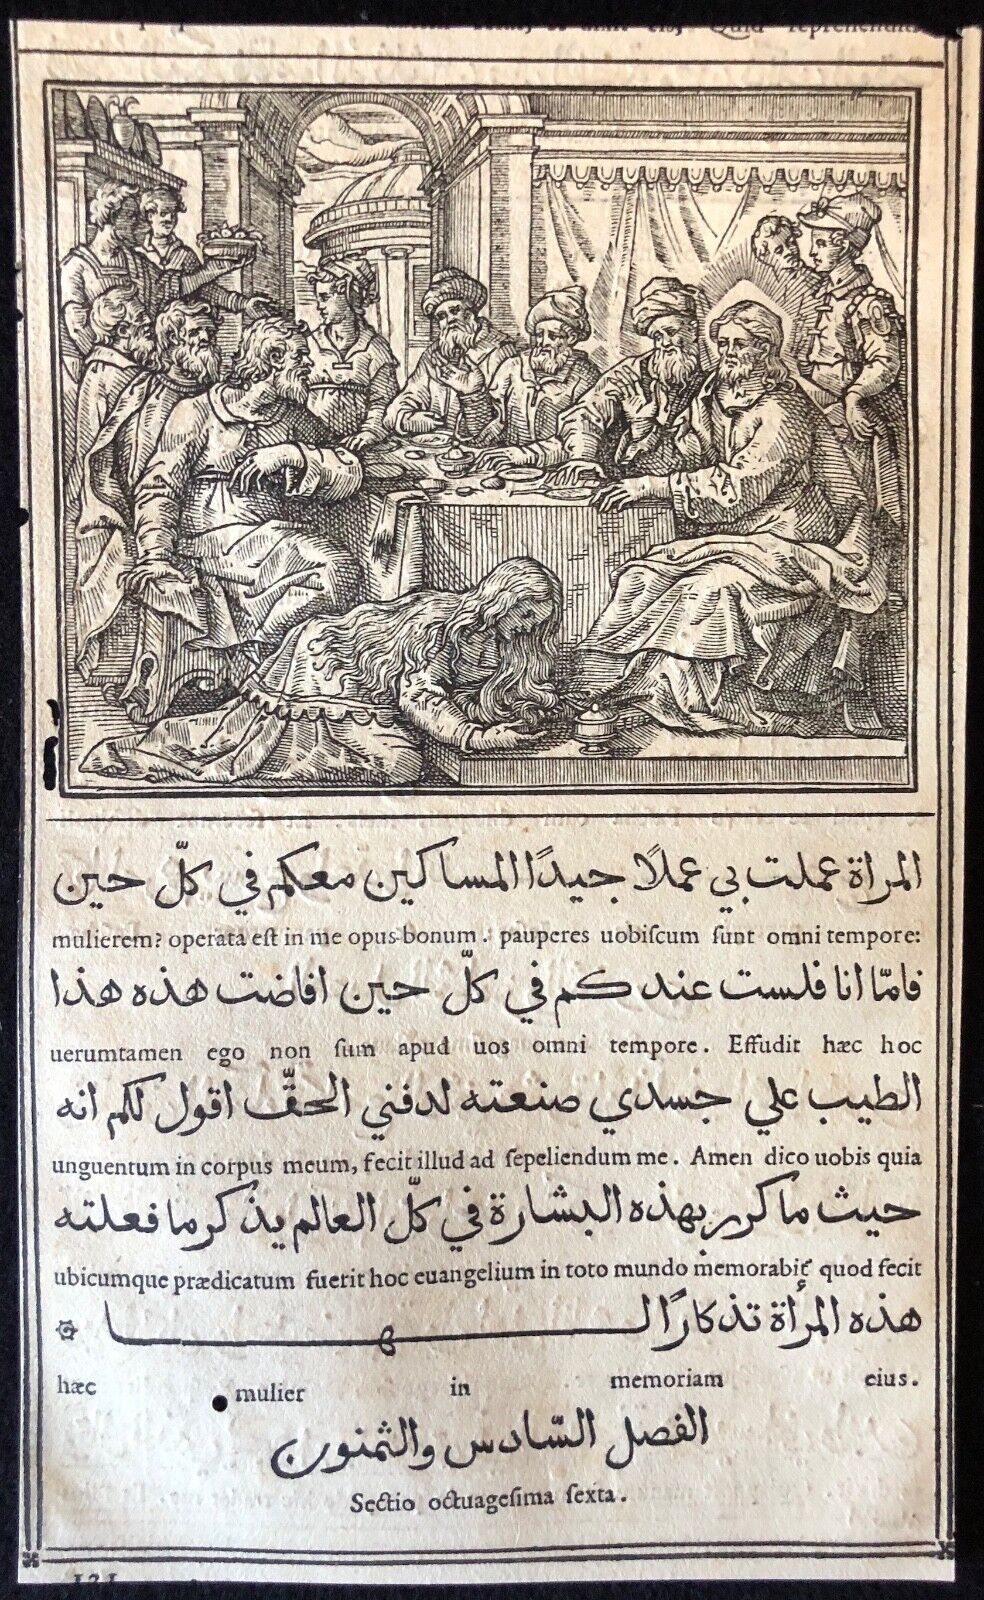 Quid reprehenditis
المراة عملت بي عملًا جيدًا المساكين معكم في كلّ حين
mulierem? operata est in me opus bonum. pauperes uobiscum sunt omni tempore:
فامّا انا فلست عندكم في كلّ حين افاضت هذه هذا
uerumtamen ego non sum apud uos omni tempore. Effudit hæc hoc
الطيب علي جسدي صنعته لدفني الحقّ اقول لكم انه
unguentum in corpus meum, fecit illud ad sepeliendum me. Amen dico uobis quia
حيث ما كرر بهذه البشارة في كلّ العالم يذكر ما فعلته
ubicumque prædicatum fuerit hoc euangelium in toto mundo memorabit̃ quod fecit
هذه المرأة تذكارًا لها
hæc mulier in memoriam eius.
الفصل السّادس والثمنون
Sectio octuagesima sexta.